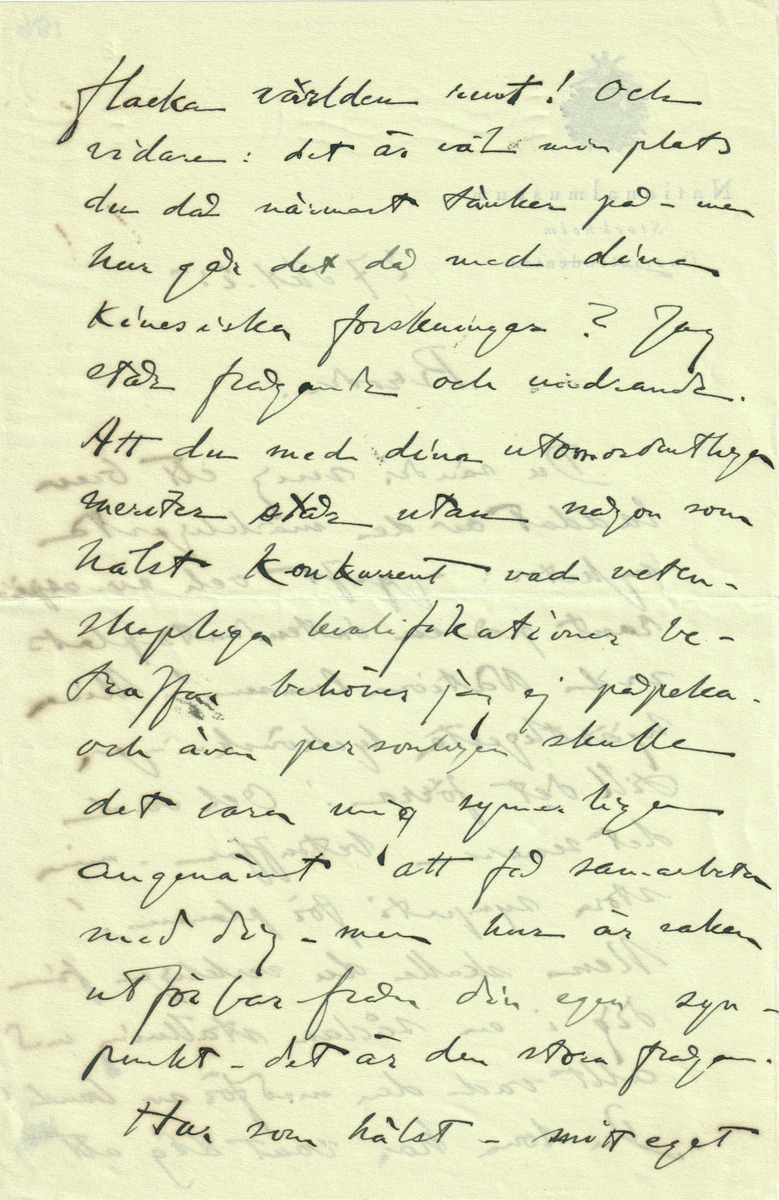 flacka världen runt! Och
vidare: det är väl min plats
du då närmast tänker på – men
hur går det då med dina
kinesiska forskningar? Jag
står frågande och undrande.
Att du med dina utomordentliga
meriter står utan någon som
hälst konkurrent vad veten-
skapliga kvalifikationer be-
träffar behöver jag ej påpeka.
och även personligen skulle
det vara mig synnerligen
angenämt att få samarbeta
med dig – men hur är saken
utförbar från din egen syn-
punkt – det är den stora frågan.
Hur som hälst – mitt eget